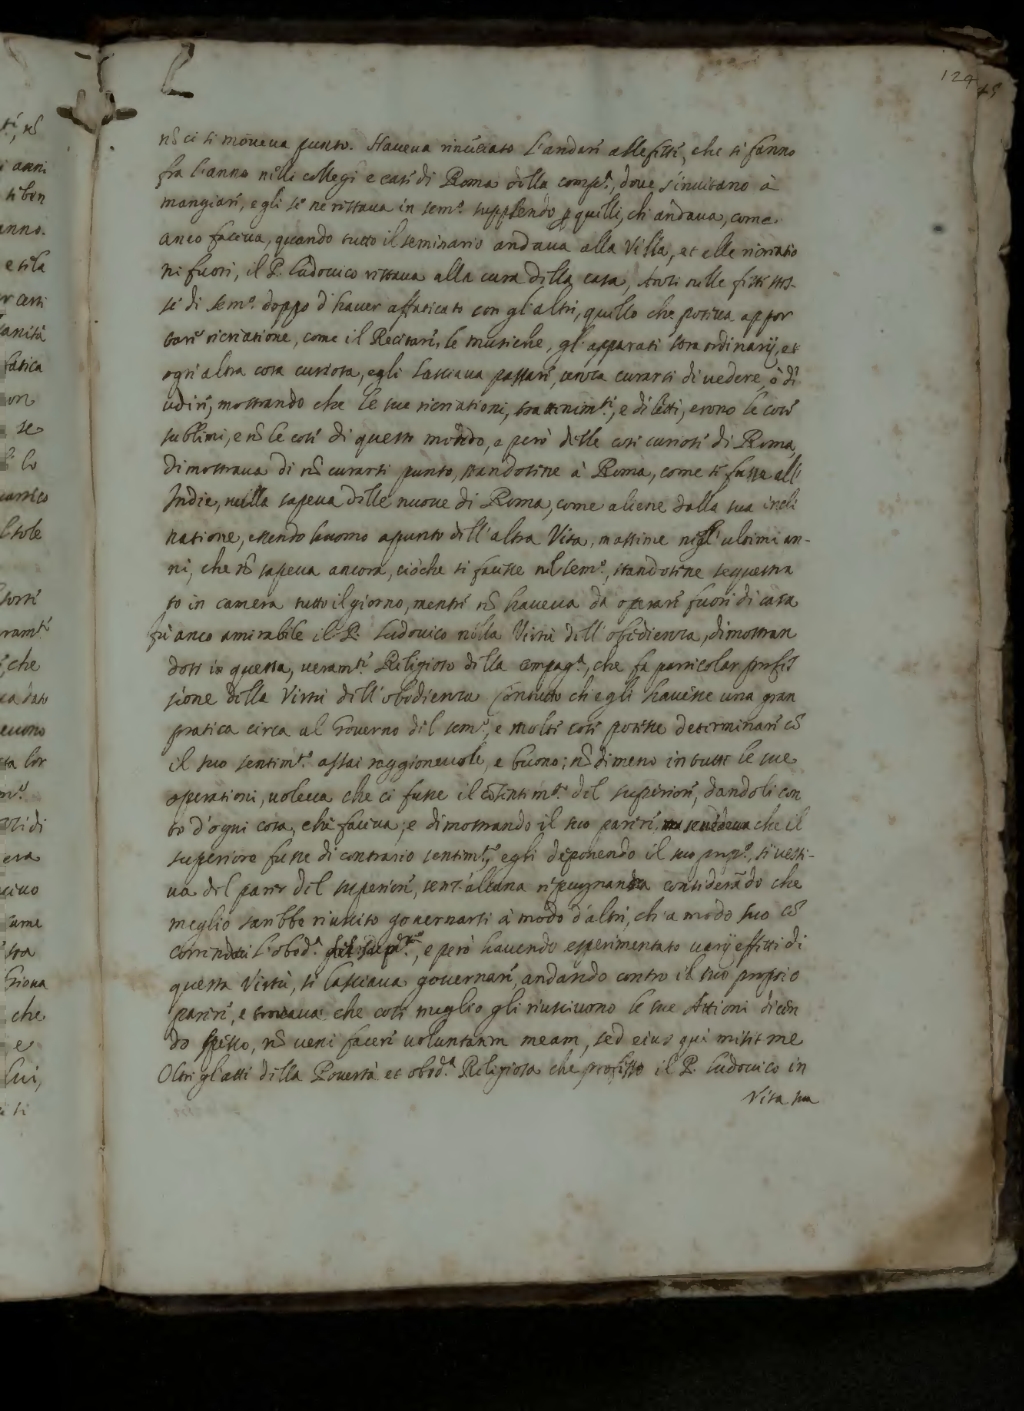 124
45
nõ ci si moueua punto. Haueua rinũciato l'andar' alle feste, che si fanno
fra l'anno nelli collegi e case di Roma della comp.ª, doue s'inuitano à
mangiar', egli se ne restaua in sem.º supplendo p quelli, ch' andaua, come
anco faceua, quando tutto il seminario andaua alla Villa, et alle ricreatio
ni fuori, il P. Ludouico restaua alla cura della casa, Anzi nelle feste stes-
se di sem.º doppo d'hauer affaticato con gl'altri, quello che poteua appor
tare ricreatione, come il Recitare, le musiche, gl'apparati straordinarij, et
ogn'altra cosa curiosa, egli lasciaua passar', senza curarsi di uedere, ò di
udire, mostrando che le sue ricreationi, trattenim.ti, e diletti, erono le cose
sublimi, e nõ le cose di questo mondo, e però delle cose curiose di Roma,
dimostraua di nõ curarsi punto, standosene à Roma, come se fusse all'
Indie, nulla sapeua delle nuoue di Roma, come aliene dalla sua incli
natione, essendo huomo appunto dell'altra Vita, massime negl'ultimi an-
ni, che nõ sapeua ancora, ciòche si facesse nel sem.º, standosene sequestra
to in camera tutto il giorno, mentre nõ haueua da operare fuori di casa
fù anco amirabile il P. Ludouico nella Virtù dell'obedienza, dimostran
dosi in questa, ueram.te Religioso della Compag.ª, che fa particolar profes
sione della Virtù dell'obedienza ch'egli hauesse una gran
pratica circa al Gouerno del sem.º, e molte cose potesse determinare cõ
il suo sentim.to assai raggioneuole, e buono; nõdimeno in tutte le sue
operationi, uoleua che ci fusse il cõsentim.to del superiore, dandoli con
to d'ogni cosa, che faceua; e dimostrando il suo parere, che il
superiore fusse di contrario sentim.to, egli deponendo il suo prop.º, si uesti-
ua del parer del superiore, senz'alcuna repugnanza considerãdo che
meglio sarebbe riuscito gouernarsi à modo d'altri, ch'a modo suo cõ
l'obed.ª, e però hauendo esperimentato uarij effetti di
questa Virtù, si lasciaua gouernare, andando contro il suo proprio
parere, e trouaua che così meglio gli riusciuono le sue Attioni dicen
do spesso, nõ ueni facere uoluntatem meam, sed eius qui misit me
Oltre gl'atti della Pouertà et obed.ª Religiosa che professò il P. Ludouico in
Vita sua